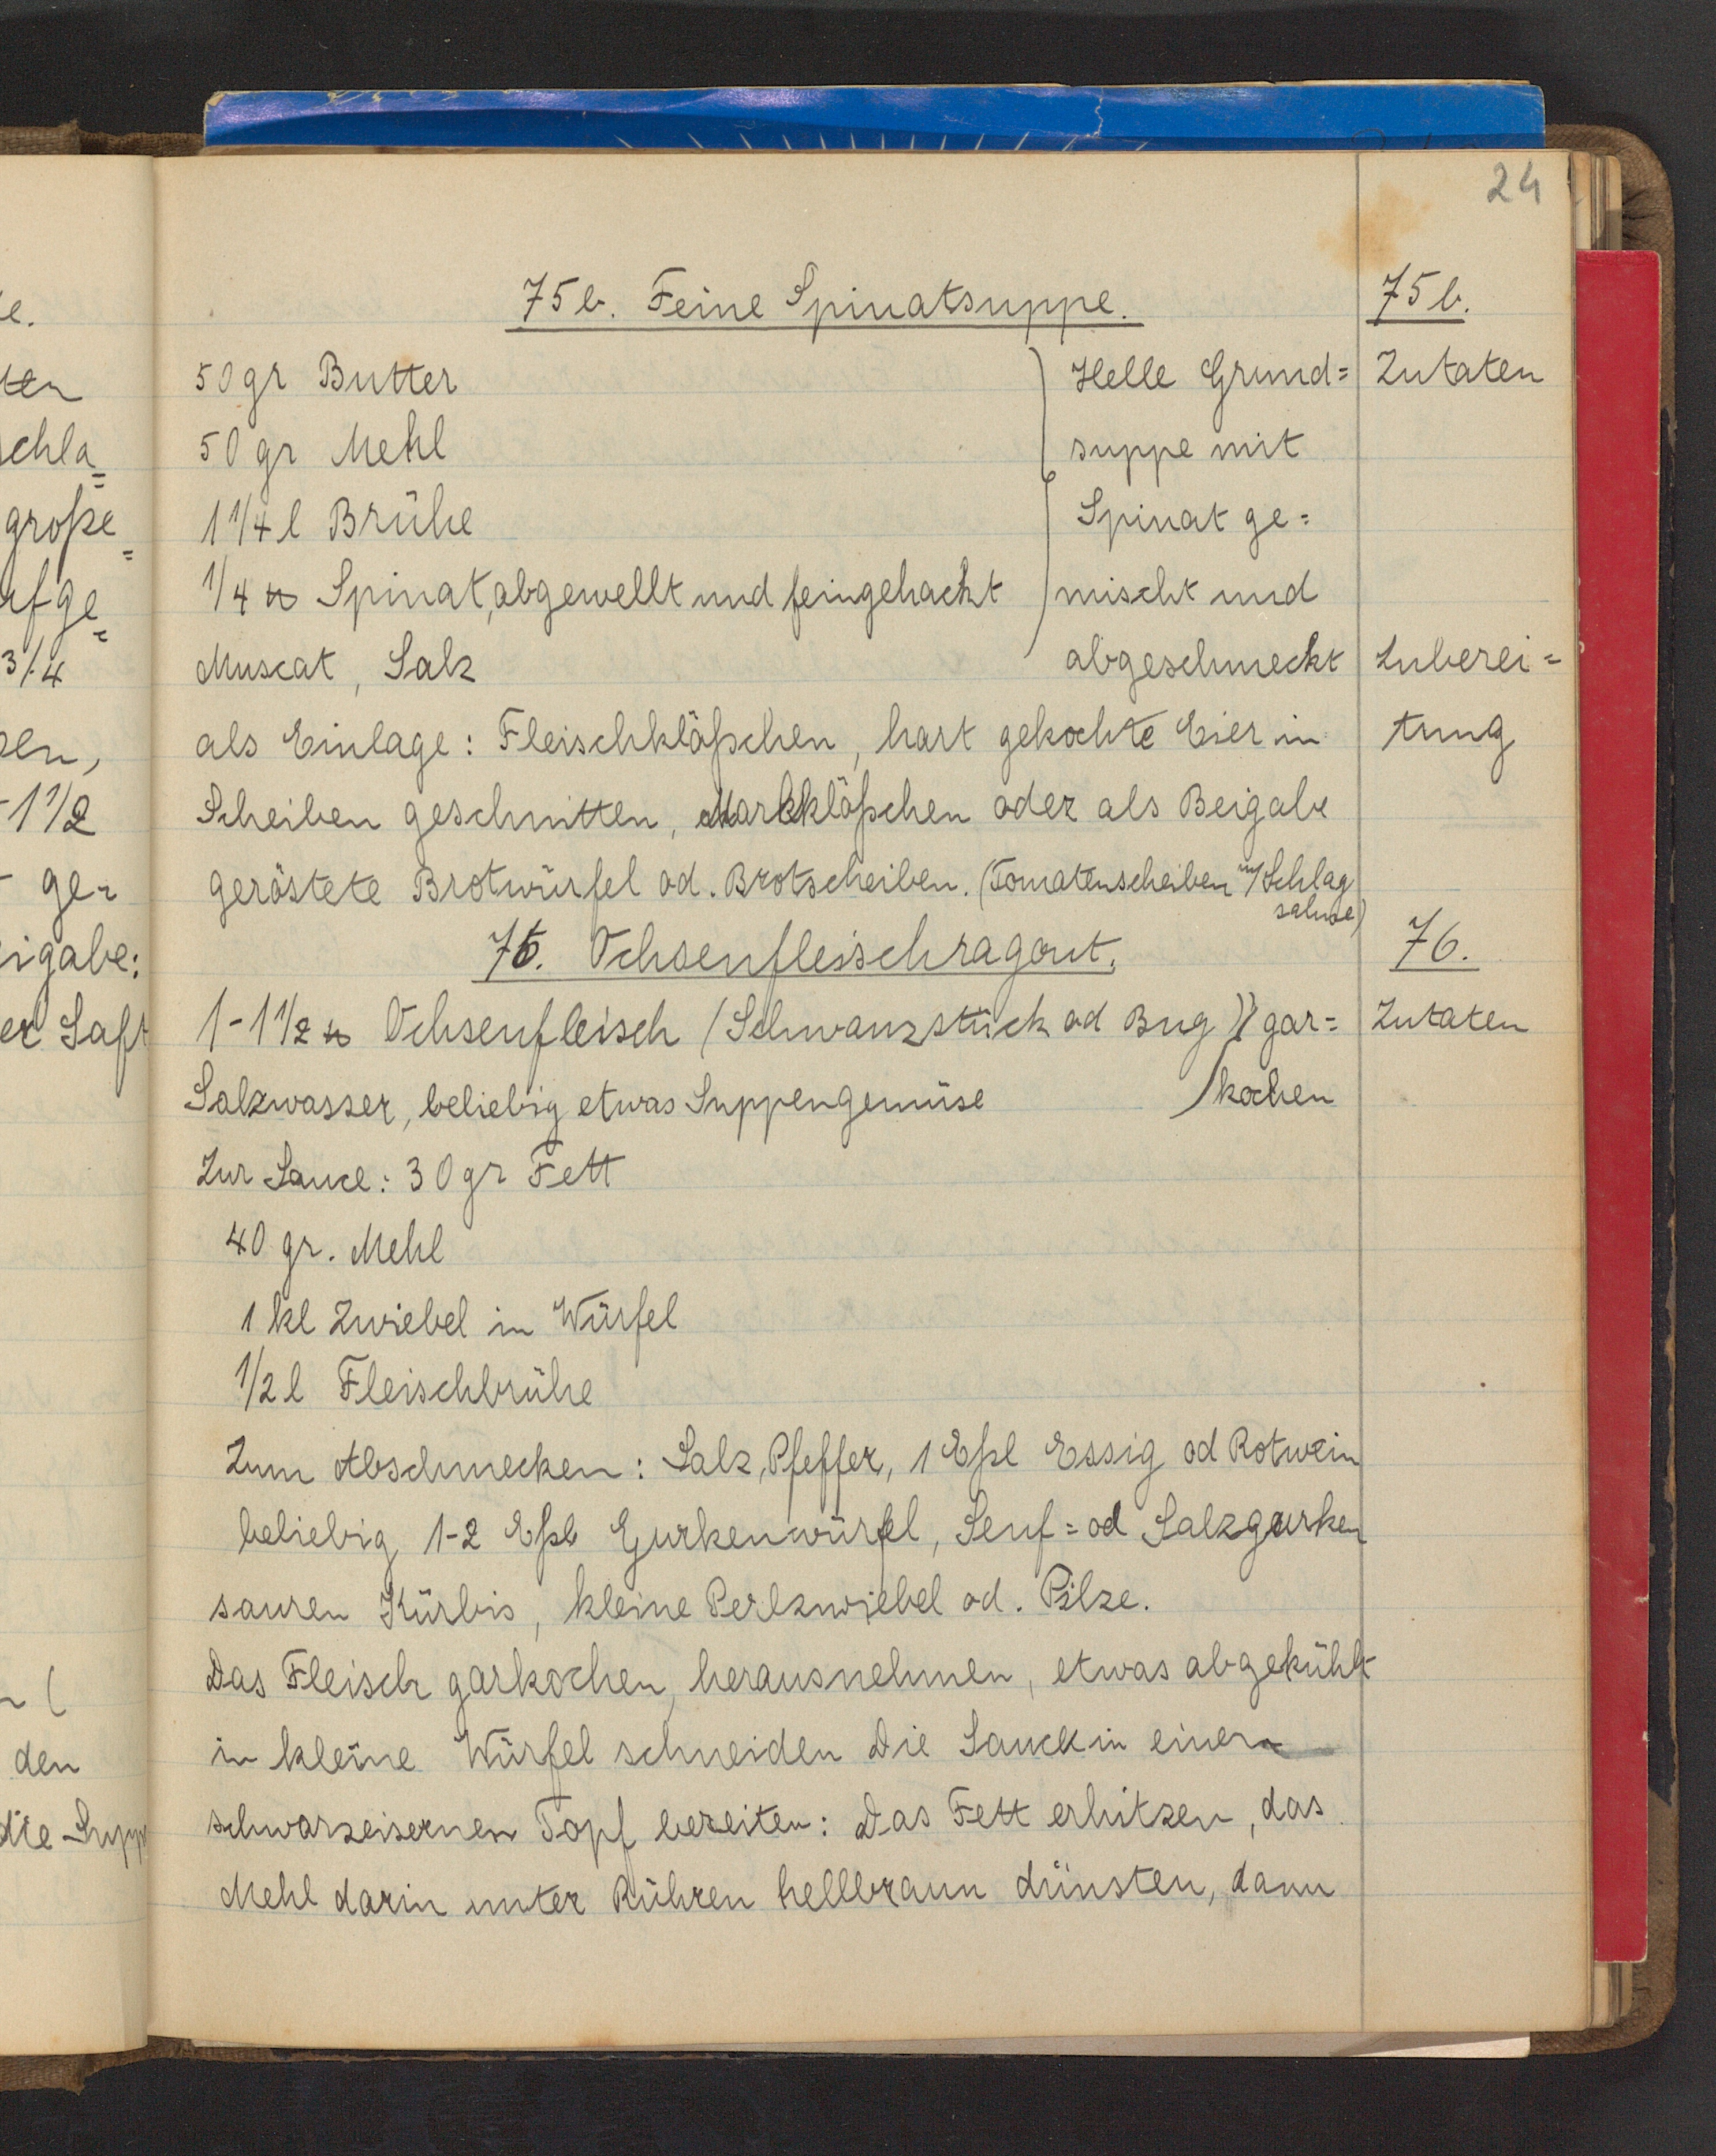 24
75b. Feine Spinatsuppe.
75b.
50gr Butter
Helle Grund=
Zutaten
50 gr Mehl
suppe mit
1 1/4 l Brühe
Spinat ge=
1/4 ℔ Spinat, abgewellt und feingehackt
mischt und
Muscat, Salz
abgeschmeckt
Zuberei=
als Einlage: Fleischklößchen, hart gekochte Eier in
tung
Scheiben geschnitten, Markklößchen oder als Beigabe
geröstete Brotwürfel od. Brotscheiben. (Tomatenscheiben m/ Schlag
sahne)
76. Ochsenfleischragout.
76.
1-1 1/2 ℔ Ochsenfleisch (Schwanzstück od Bug) gar=
Zutaten
Salzwasser, beliebig etwas Suppengemüse
kochen
Zur Sauce: 30gr Fett
40 gr. Mehl
1 kl Zwiebel in Würfel
1/2 l Fleischbrühe
Zum Abschmecken: Salz, Pfeffer, 1 Eßl Essig od Rotwein
beliebig 1-2 Eßl Gurkenwürfel, Senf= od Salzgurken
sauren Kürbis, kleine Perlzwiebel od. Pilze.
Das Fleisch garkochen, herausnehmen, etwas abgekühlt
in kleine Würfel schneiden Die Sauce in einem
schwarzeisernen Topf bereiten: Das Fett erhitzen, das
Mehl darin unter Rühren hellbraun dünsten, dann
e.
ten
schla=
große=
ufge=
3/4
en,
-1 1/2
- ge=
eigabe:
er Saft
den
die Supp